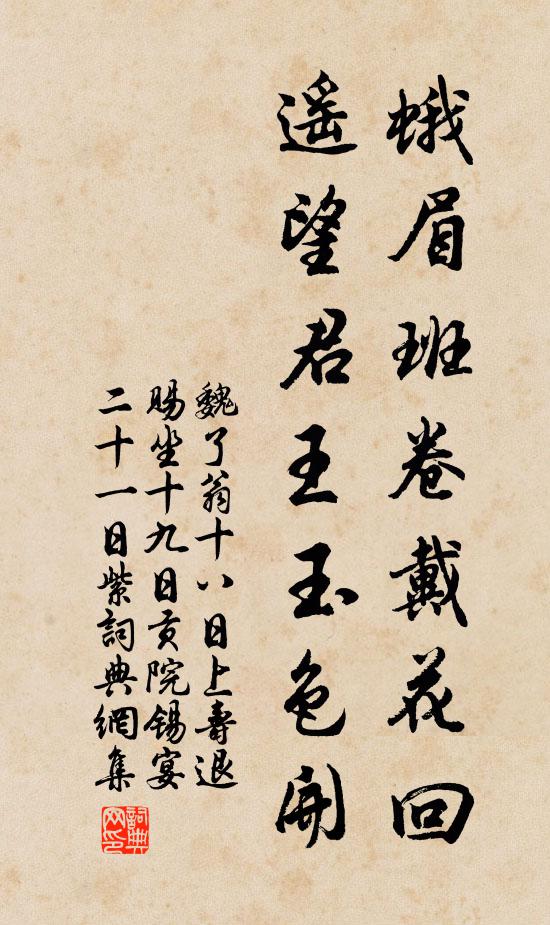 蛾眉班卷戴花回
遥望君王玉色開
魏了翁十八日上壽退
賜坐十九日貢院錫宴
二十一日紫詞典網集
詞典
网印